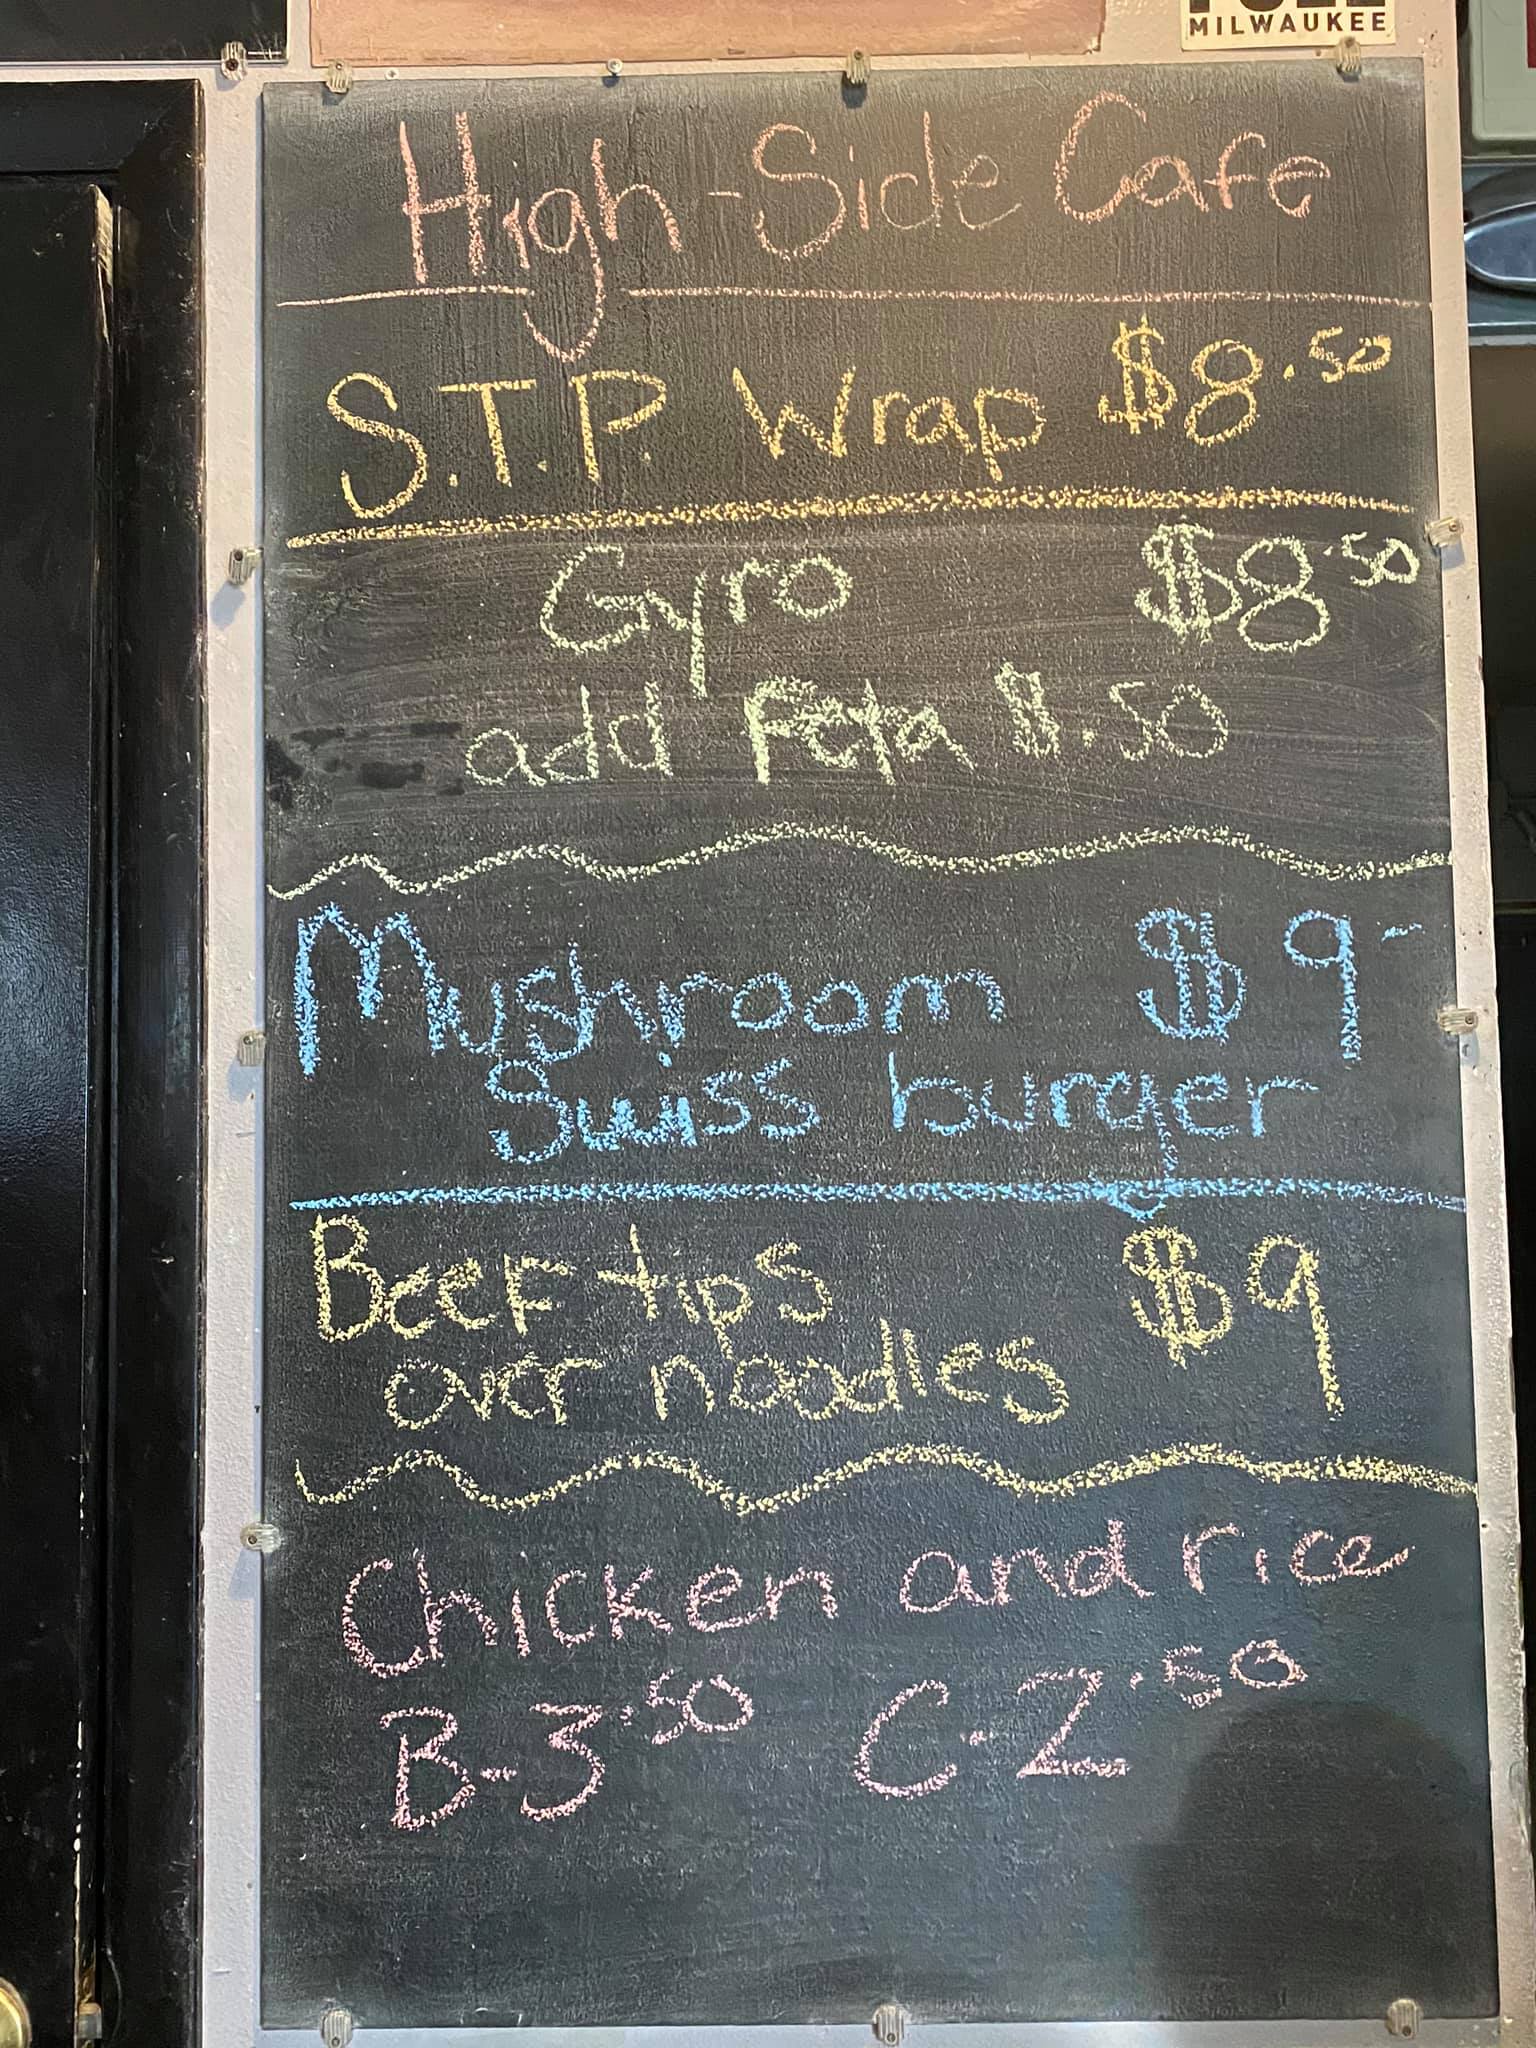 MILWAUKEE
High-Side Cafe
S.T.P. Wrap $8.50
Gyro $8.50
add Feta $.50
Mushroom $9-
Swiss burger
Beef tips $9
over noodles
Chicken and rice
B-3.50 C-2.50